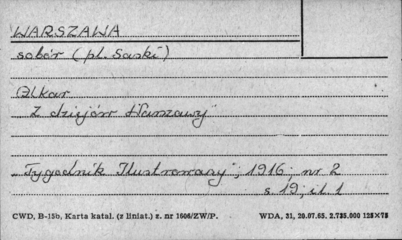 WARSZAWA
sobór (pl. Saski)
Alkar
Z dziejów Warszawy
„Tygodnik Ilustrowany", 1916, nr 2
s. 19, il. 1
CWD, B-15b, Karta katal. (z liniat.) z. nr 1606/ZW/P. WDA, 31, 20.07.65. 2.725.000 125×75